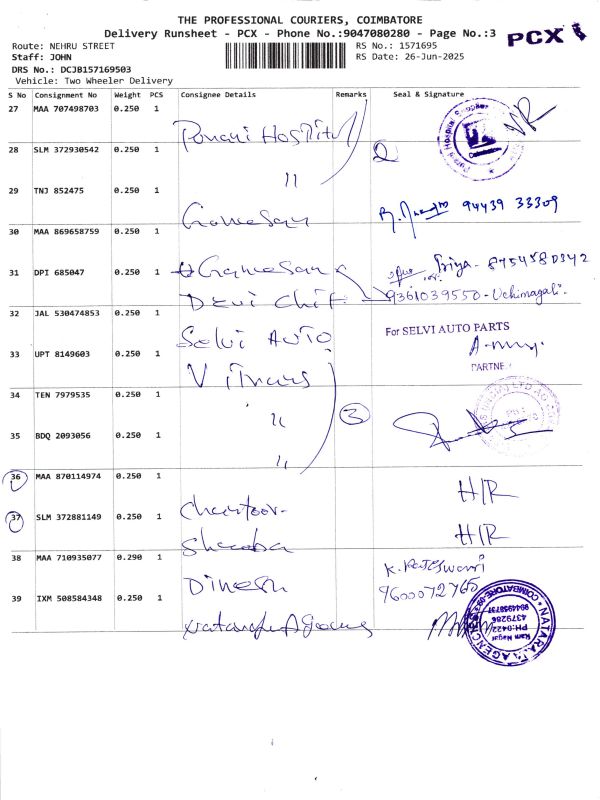 THE PROFESSIONAL COURIERS, COIMBATORE
Delivery Runsheet - PCX - Phone No.:9047080280 - Page No.:3
PCX
Route: NEHRU STREET
RS No.: 1571695
Staff: JOHN
RS Date: 26-Jun-2025
DRS No.: DCJB157169503
Vehicle: Two Wheeler Delivery
S No Consignment No Weight PCS Consignee Details Remarks Seal & Signature
27 MAA 707498703 0.250 1
Ponani Hospital
28 SLM 372930542 0.250 1
"
2
29 TNJ 852475 0.250 1
Ganesan
94439 33309
30 MAA 869658759 0.250 1
Ganesan
Priya - 8754580342
31 DPI 685047 0.250 1
Devi Chit
9361039550 -
32 JAL 530474853 0.250 1
Selvi Auto
For SELVI AUTO PARTS
PARTNER
33 UPT 8149603 0.250 1
V
34 TEN 7979535 0.250 1
"
3
35 BDQ 2093056 0.250 1
"
36 MAA 870114974 0.250 1
H/R
37 SLM 372881149 0.250 1
H/R
38 MAA 710935077 0.290 1
Dinesh
K. Rajeswari
9600072765
39 IXM 508584348 0.250 1
Nataraja Agency
NATARAJA AGENCY
COIMBATORE
Ram Nagar
PH:0422
4379286